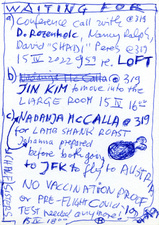 WAITING FOR
a) Conference call with @ 319
D. Rozenholc, Nancy Ralph,
David "SHADI" Peres @ 319
15 IV 2022 9 53 re. LOFT
b) McCalla @
JIN KIM to move into the
LARGE ROOM 15 IV 16 00
c) NADANJA McCALLA @ 319
for LAMB SHANK ROAST
Johanna prepared
before both going
to JFK to fly to AUSTRIA
NO VACCINATION PROOF
or PRE-FLIGHT Covid19
TEST needed anymore!
15 IV 18 00